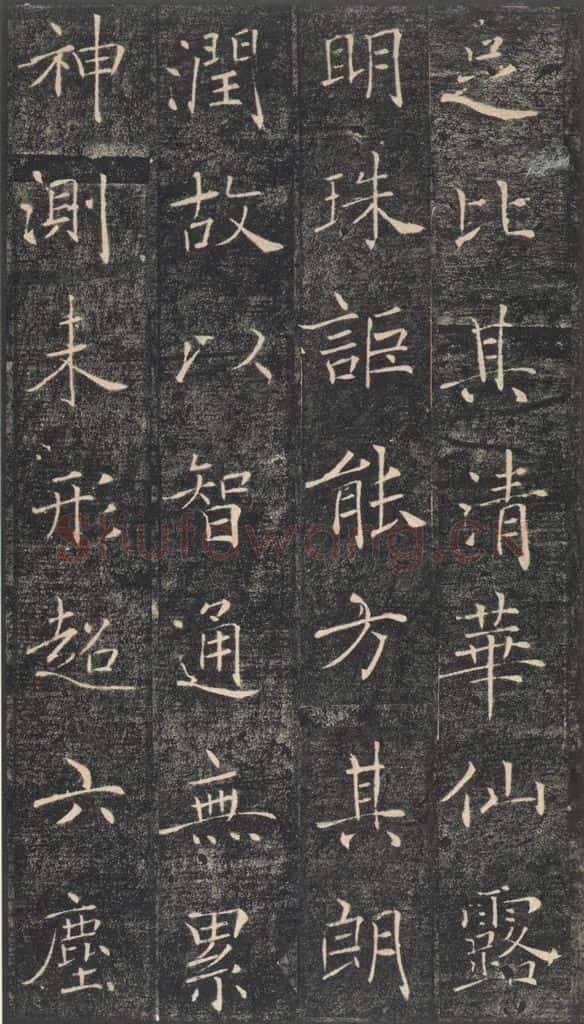 足比其清華仙露
明珠詎能方其朗
潤故以智通無累
神測未形超六塵
Shufawang.CN